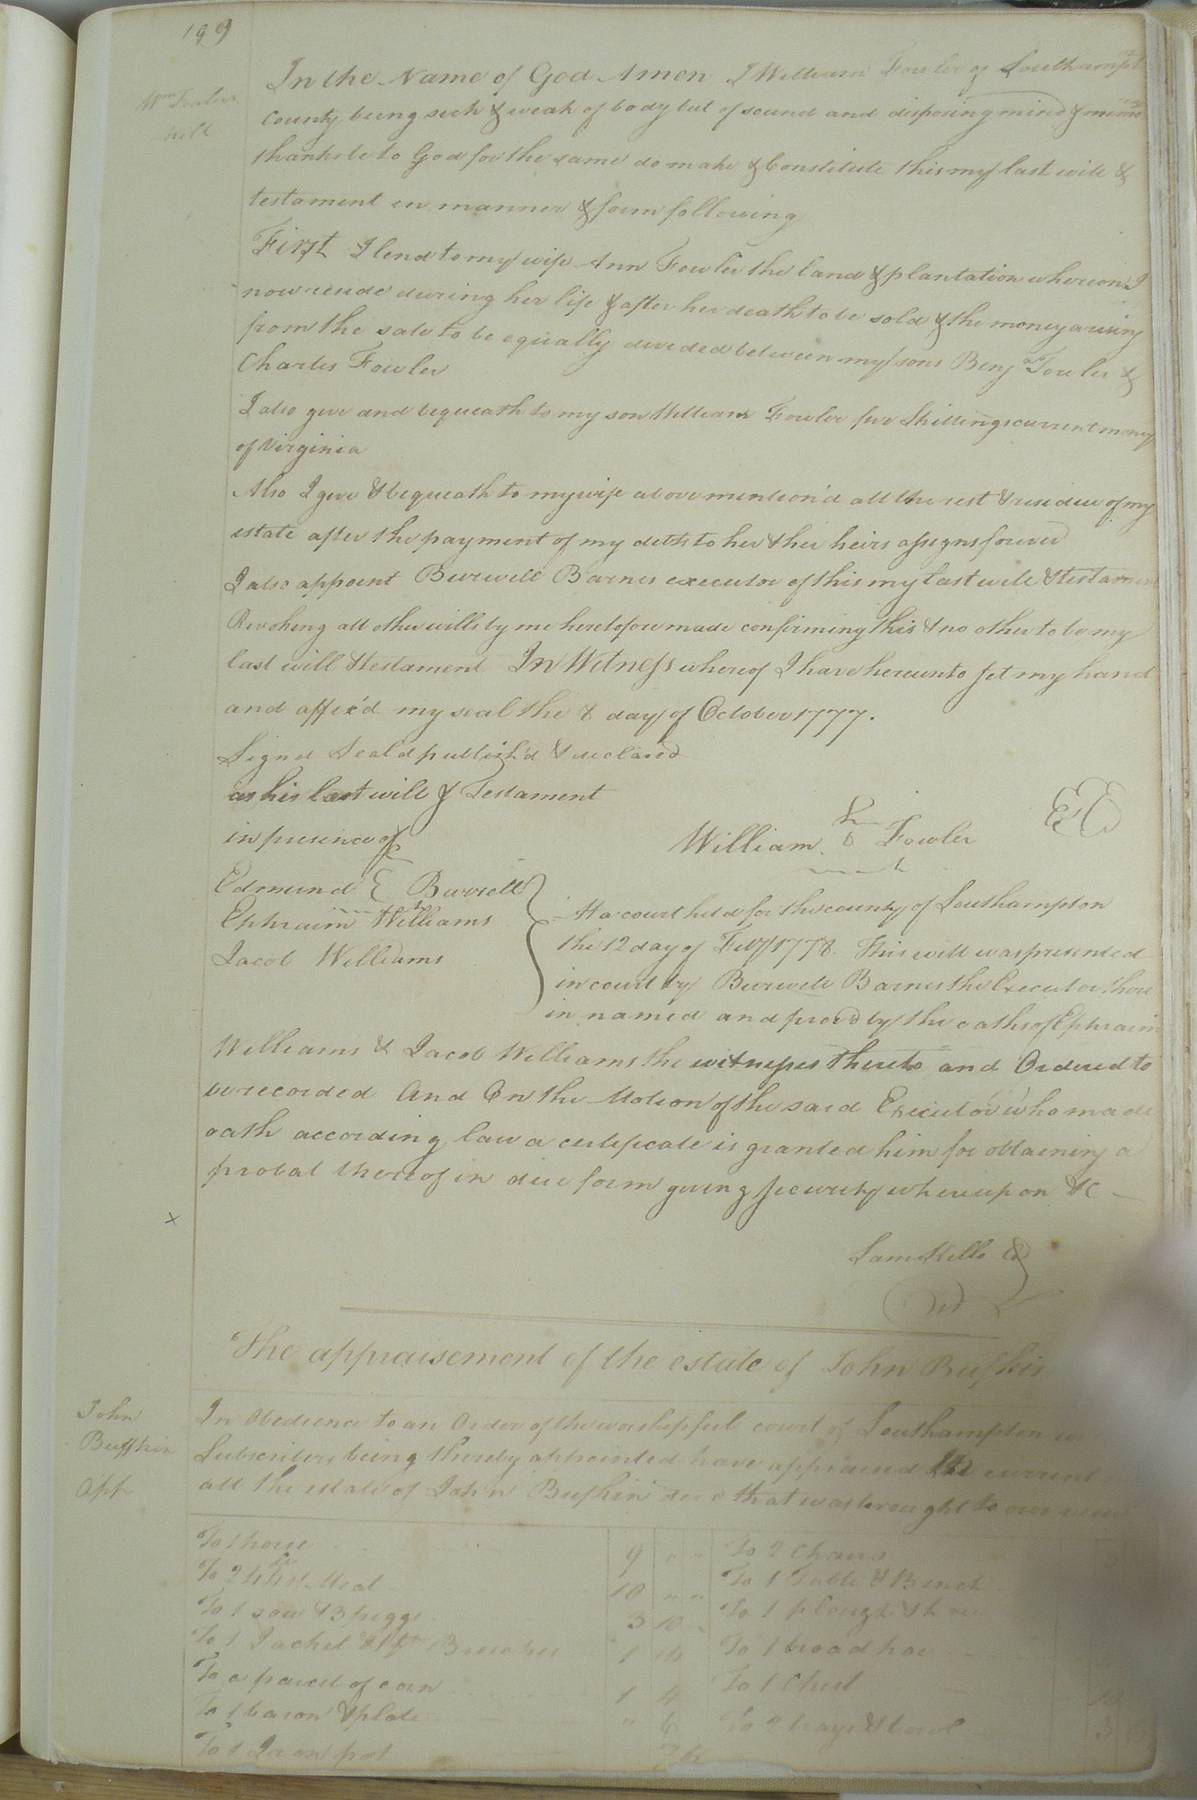 199
Wm Fowler
Will
In the Name of God Amen I William Fowler of Southampt
County being sick & weak of body but of sound and disposing mind & memo
thanks be to God for the same do make & Constitute this my last will &
testament in manner & form following
First I lend to my wife Ann Fowler the land & plantation whereon I
now reside during her life & after her death to be sold & the money arising
from the sale to be equally devided between my sons Benja Fowler &
Charles Fowler
I also give and bequeath to my son William Fowler five Shillings current money
of Virginia
Also I give & bequeath to my wife above mention'd all the rest & residue of my
estate after the payment of my debts to her & her heirs assigns forever
I also appoint Burwell Barnes executor of this my last will & testamen
Revoking all other wills by me heretofore made confirming this & no other to be my
last will & testament In Witness whereof I have hereunto set my hand
and affix'd my seal the 8 day of October 1777.
Signd Seald publish'd & declared
as his last will & Testament
in presence of
William Fowler
Edmund E Burrell
Ephraim Williams
Jacob Williams
At a court held for the county of Southampton
the 12 day of Feby 1778. This will was presented
in court by Burwell Barnes the Executor there
in named and proved by the oaths of Ephraim
Williams & Jacob Williams the witnesses thereto and Ordered to
be recorded And On the Motion of the said Executor who made
oath according law a certificate is granted him for obtaining a
probat thereof in due form giving security whereupon &c
Sam Kello
The appraisement of the estate of John Bufkin
John
Buffkin
App
In Obedience to an Order of the worshipful court of Southampton
Subscribers being thereby appointed have appraised in current
all the estate of John Bufkin decd that was brought to our view
To 1 horse 9 " " To 2 Chairs
To 2 Meal 10 " " To 1 Table & Bench
To 1 sow & 3 piggs 3 10 To 1 plough & hoe
To 1 Jacket & Breeches 1 10 To 1 broad hoe
To a parcel of corn 1 4 To 1 Chest
To 1 bason & plate " 6 To 2 trays & bowl
To 1 Iron pot 7 6